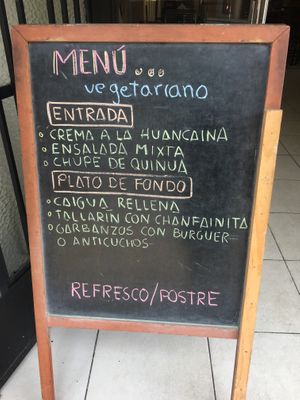 MENÚ...
vegetariano
ENTRADA
• CREMA A LA HUANCAINA
• ENSALADA MIXTA
• CHUPE DE QUINUA
PLATO DE FONDO
• CAIGUA RELLENA
• TALLARIN CON CHANFAINITA
• GARBANZOS CON BURGUER
O ANTICUCHOS
REFRESCO/POSTRE